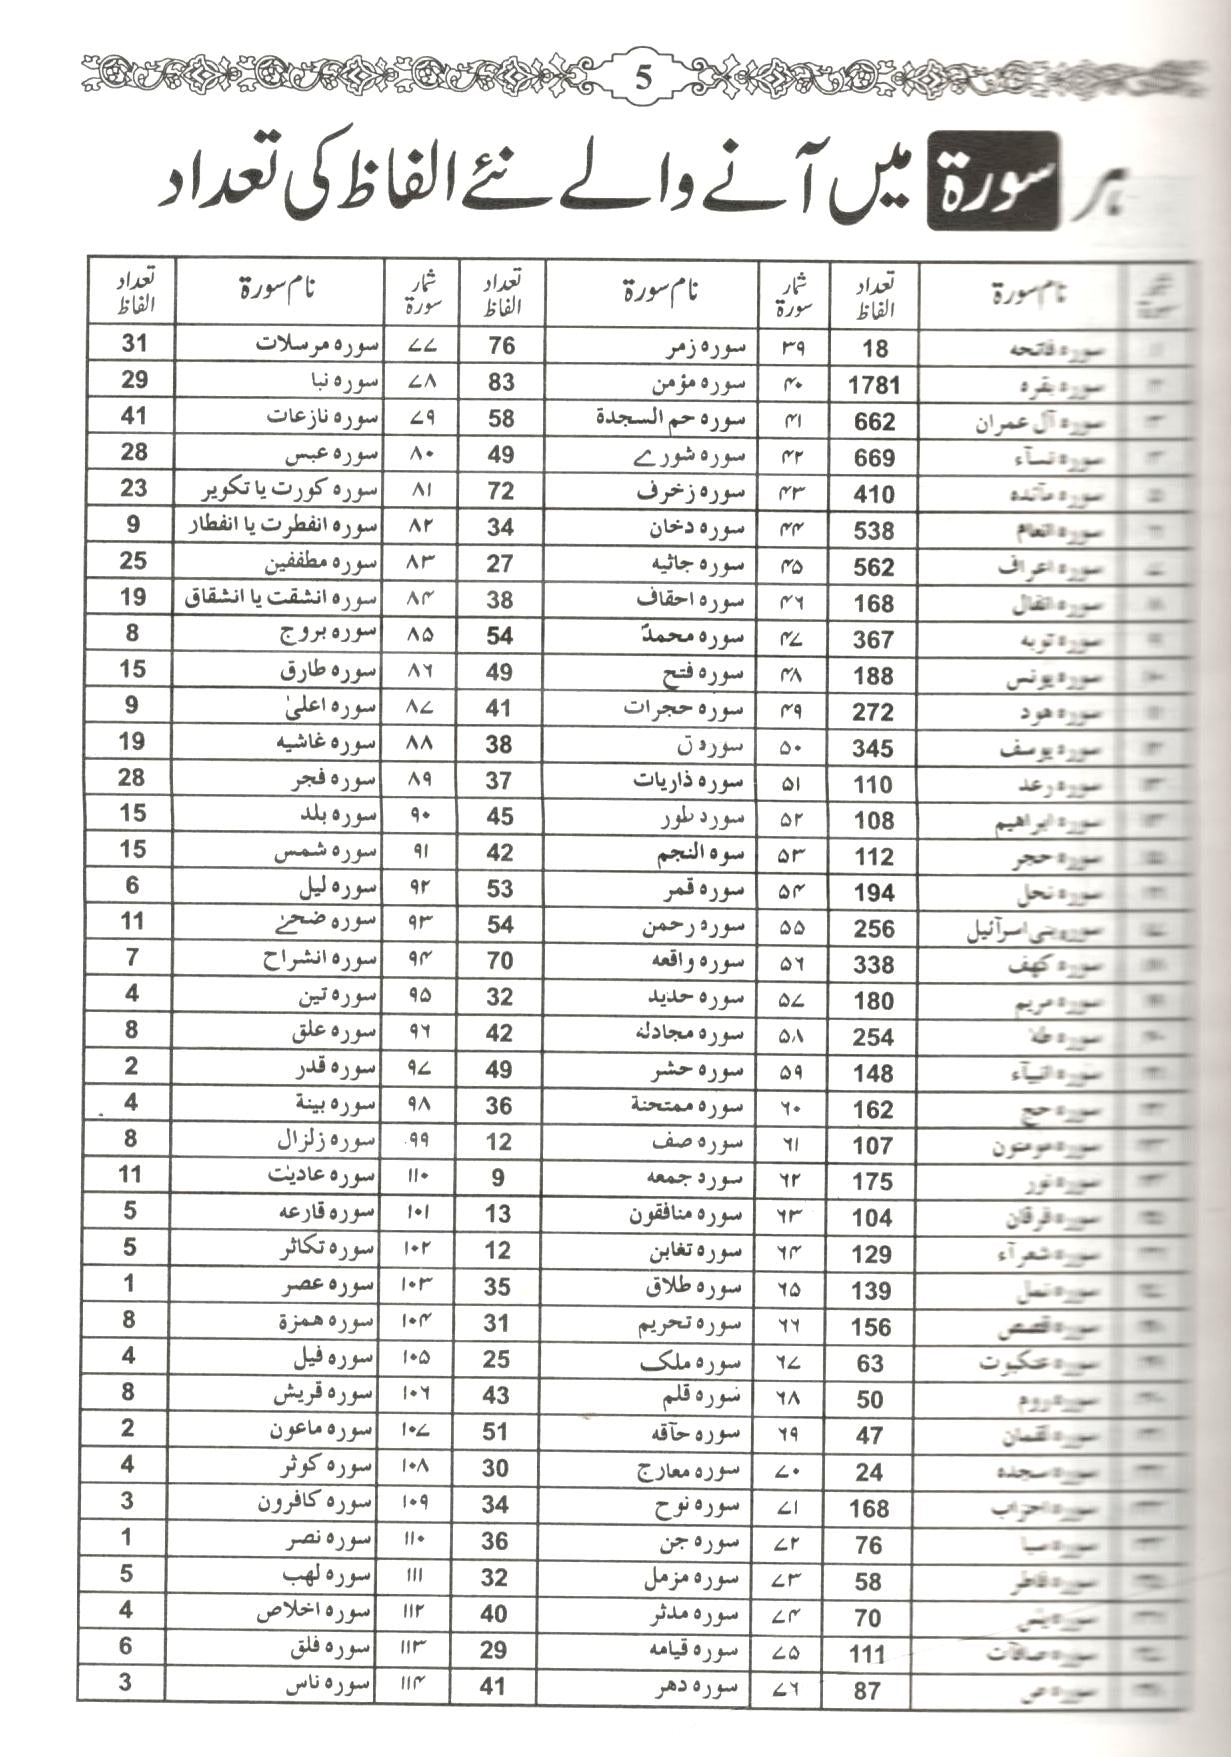 5
ہر سورۃ میں آنے والے نئے الفاظ کی تعداد
نام سورۃ تعداد الفاظ شمار سورۃ نام سورۃ تعداد الفاظ شمار سورۃ نام سورۃ تعداد الفاظ
سورہ فاتحہ 18 ۳۹ سورہ زمر 76 ۷۷ سورہ مرسلات 31
سورہ بقرہ 1781 ۴۰ سورہ مؤمن 83 ۷۸ سورہ نبا 29
سورہ آل عمران 662 ۴۱ سورہ حم السجدۃ 58 ۷۹ سورہ نازعات 41
سورہ نسآء 669 ۴۲ سورہ شورے 49 ۸۰ سورہ عبس 28
سورہ مآئدہ 410 ۴۳ سورہ زخرف 72 ۸۱ سورہ کورت یا تکویر 23
سورہ انعام 538 ۴۴ سورہ دخان 34 ۸۲ سورہ انفطرت یا انفطار 9
سورہ اعراف 562 ۴۵ سورہ جاثیہ 27 ۸۳ سورہ مطففین 25
سورہ انفال 168 ۴۶ سورہ احقاف 38 ۸۴ سورہ انشقت یا انشقاق 19
سورہ توبہ 367 ۴۷ سورہ محمدؐ 54 ۸۵ سورہ بروج 8
سورہ یونس 188 ۴۸ سورہ فتح 49 ۸۶ سورہ طارق 15
سورہ ھود 272 ۴۹ سورہ حجرات 41 ۸۷ سورہ اعلیٰ 9
سورہ یوسف 345 ۵۰ سورہ ق 38 ۸۸ سورہ غاشیہ 19
سورہ رعد 110 ۵۱ سورہ ذاریات 37 ۸۹ سورہ فجر 28
سورہ ابراھیم 108 ۵۲ سورہ طور 45 ۹۰ سورہ بلد 15
سورہ حجر 112 ۵۳ سوہ النجم 42 ۹۱ سورہ شمس 15
سورہ نحل 194 ۵۴ سورہ قمر 53 ۹۲ سورہ لیل 6
سورہ بنی اسرآئیل 256 ۵۵ سورہ رحمن 54 ۹۳ سورہ ضحےٰ 11
سورہ کھف 338 ۵۶ سورہ واقعہ 70 ۹۴ سورہ انشراح 7
سورہ مریم 180 ۵۷ سورہ حدید 32 ۹۵ سورہ تین 4
سورہ طہٰ 254 ۵۸ سورہ مجادلہ 42 ۹۶ سورہ علق 8
سورہ انبیآء 148 ۵۹ سورہ حشر 49 ۹۷ سورہ قدر 2
سورہ حج 162 ۶۰ سورہ ممتحنۃ 36 ۹۸ سورہ بینۃ 4
سورہ مومنون 107 ۶۱ سورہ صف 12 ۹۹ سورہ زلزال 8
سورہ نور 175 ۶۲ سورہ جمعہ 9 ۱۱۰ سورہ عادیٰت 11
سورہ فرقان 104 ۶۳ سورہ منافقون 13 ۱۰۱ سورہ قارعہ 5
سورہ شعرآء 129 ۶۴ سورہ تغابن 12 ۱۰۲ سورہ تکاثر 5
سورہ نمل 139 ۶۵ سورہ طلاق 35 ۱۰۳ سورہ عصر 1
سورہ قصص 156 ۶۶ سورہ تحریم 31 ۱۰۴ سورہ ھمزۃ 8
سورہ عنکبوت 63 ۶۷ سورہ ملک 25 ۱۰۵ سورہ فیل 4
سورہ روم 50 ۶۸ سورہ قلم 43 ۱۰۶ سورہ قریش 8
سورہ لقمان 47 ۶۹ سورہ حآقہ 51 ۱۰۷ سورہ ماعون 2
سورہ سجدہ 24 ۷۰ سورہ معارج 30 ۱۰۸ سورہ کوثر 4
سورہ احزاب 168 ۷۱ سورہ نوح 34 ۱۰۹ سورہ کافرون 3
سورہ سبا 76 ۷۲ سورہ جن 36 ۱۱۰ سورہ نصر 1
سورہ فاطر 58 ۷۳ سورہ مزمل 32 ۱۱۱ سورہ لھب 5
سورہ یٰس 70 ۷۴ سورہ مدثر 40 ۱۱۲ سورہ اخلاص 4
سورہ صافآت 111 ۷۵ سورہ قیامہ 29 ۱۱۳ سورہ فلق 6
سورہ ص 87 ۷۶ سورہ دھر 41 ۱۱۴ سورہ ناس 3